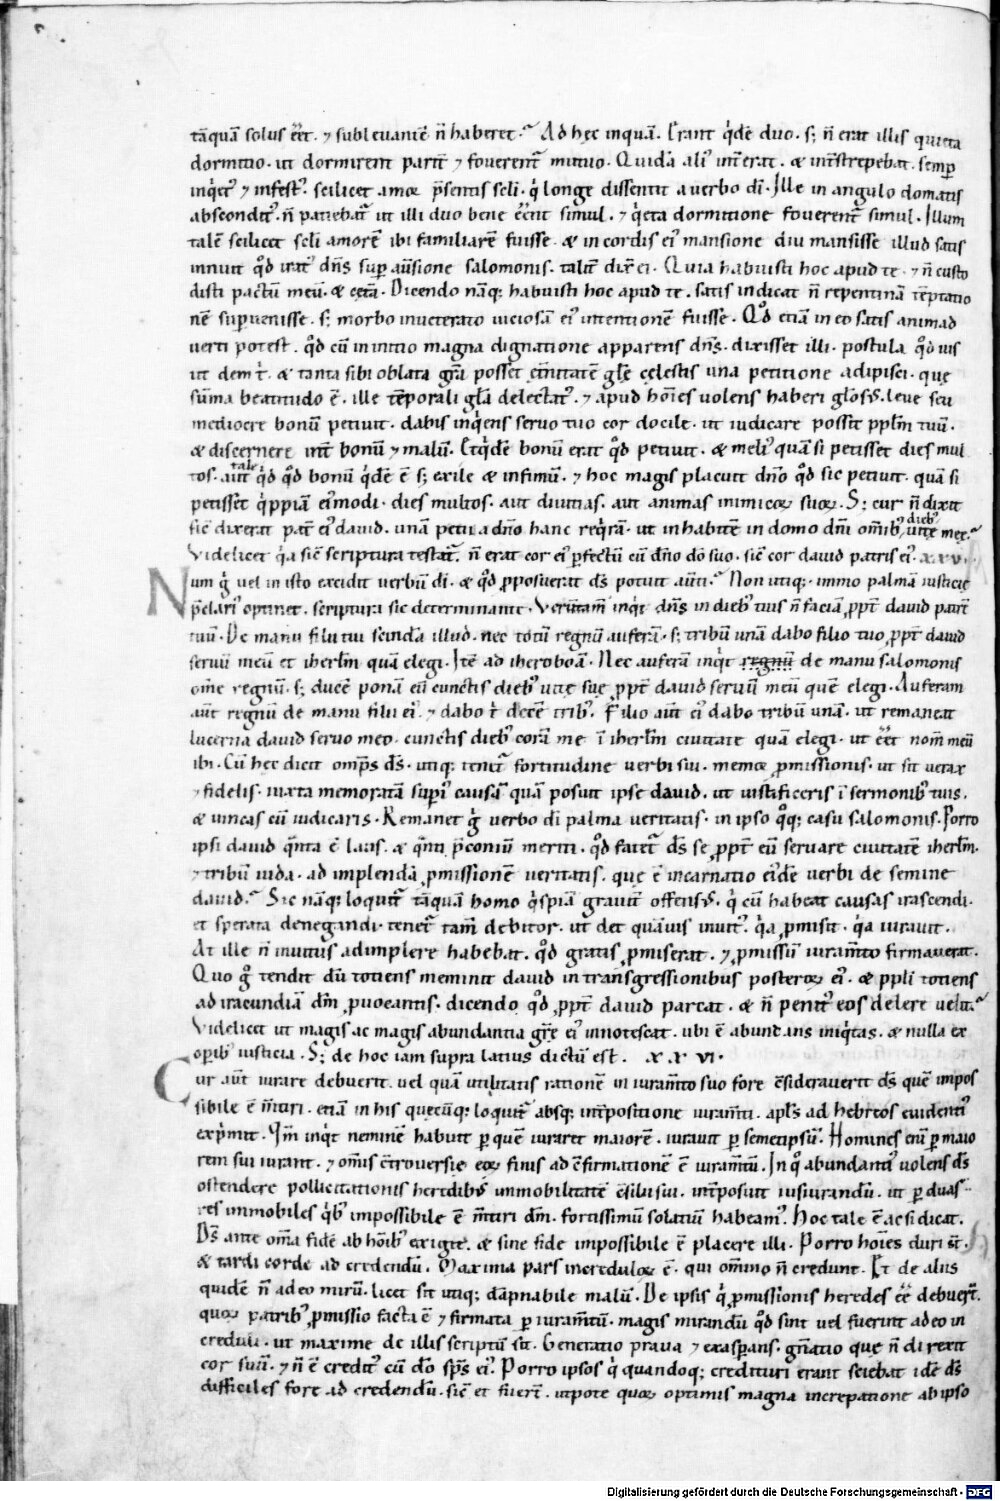 tāquā solus eēt. ⁊ sublevaniē n̄ haberet. Ad hęc inquā. Erant q̇dē duo. s; n̄ erat illis quieta
dormitio. ut dormirent parit̄ ⁊ foverent̄ mutuo. Quidā aliꝰ int̄erat. & int̄strepebat. semꝑ
inq̇etꝰ ⁊ infestꝰ. scilicet amor p̄sentis scli. q̇ longe dissentit a verbo di. Ille in angulo domatis
absconditꝰ. n̄ patiebat̄ ut illi duo bene eēnt simul. ⁊ q̇eta dormitione foverent̄ simul. Illum
talē scilicet scli amorē ibi familiarē fuisse. & in cordis eiꝰ mansione diu mansisse illud satis
innuit qd iratꝰ dn̄s suꝑ aūsione salomonis. talit̄ dix̄ ei. Quia habuisti hoc apud te. ⁊ n̄ custo
disti pactū meū. & cęta. Dicendo nāq; habuisti hoc apud te. satis indicat n̄ repentinā tēptatio
nē suꝑvenisse. s; morbo inveterato viciosā eiꝰ intentionē fuisse. Qd etiā in eo satis animad
verti potest. qd cū in initio magna dignatione apparens dn̄s. dixisset illi. postula qd vis
ut dem t̄. & tanta sibi oblata gr̄a posset et̄nitatē gl̄ę cęlestis una petitione adipisci. que
sūma beatitudo ē. ille tēporali gl̄a delectatꝰ. ⁊ apud hoīes volens haberi gl̄osꝰ. leve seu
mediocre bonū petivit. dabis inq̇ens servo tuo cor docile. ut iudicare possit ppl̄m tuū.
& discernere int̄ bonū ⁊ malū. Etq̇dē bonū erat qd petivit. & meliꝰ quā si petisset dies mul
tos. aut tale q̇d qd bonū q̇dē ē s; exile & infimū. ⁊ hoc magis placuit dn̄o qd sic petivit. quā si
petisset q̇ppiā eiꝰmodi. dies multos. aut divitias. aut animas inimicoꝝ suoꝝ. S; cur n̄ dixit
sic dixerat pat̄ eiꝰ david. unā petii a dn̄o hanc req̇rā. ut inhabitē in domo dn̄i om̄ibꝰ diebꝰ vitę meę.
Videlicet q̇a sic scriptura testat̄. n̄ erat cor eiꝰ ꝑfectū cū dn̄o do suo. sic cor david patris eiꝰ. xxv.
Num ḡ vel in isto excidit verbū di. & qd ꝓposuerat ds potuit aūti. Non utiq;. immo palmā iusticię
p̄clariꝰ optinet. scriptura sic determinante. Verūtam̄ inq̇t dn̄s in diebꝰ tuis n̄ faciā ꝓpt̄ david patrē
tuū. De manu filii tui scindā illud. nec totū regnū auferā. s; tribū unā dabo filio tuo ꝓpt̄ david
servū meū et ihrl̄m quā elegi. Itē ad iheroboā. Nec auferā inq̇t regnū de manu salomonis
om̄e regnū. s; ducē ponā eū cunctis diebꝰ vitę suę ꝓpt̄ david servū meū quē elegi. Auferam
aūt regnū de manu filii eiꝰ. ⁊ dabo t̄ decē tribꝰ. Filio aūt eiꝰ dabo tribū unā. ut remaneat
lucerna david servo meo. cunctis diebꝰ corā me ī iherl̄m civitate quā elegi. ut eēt nom̄ meū
ibi. Cū hęc dicit omp̄s ds. utiq; tenet̄ fortitudine verbi sui. memor ꝓmissionis. ut sit verax
⁊ fidelis. iuxta memoratā supiꝰ causā quā posuit ipse david. ut iustificeris ī sermonibꝰ tuis.
& vincas cū iudicaris. Remanet ḡ verbo di palma veritatis. in ipso qq; casu salomonis. Porro
ipsi david q̄nta ē laus. & q̄nti p̄conii meriti. qd fatet̄ ds se ꝓpt̄ eū servare civitatē iherl̄m.
⁊ tribū iuda. ad implendā ꝓmissionē veritatis. quę ē incarnatio eiꝰdē verbi de semine
david. Sic nāq; loquit̄ tāquā homo q̇spiā gravit̄ offensꝰ. q̇ cū habeat causas irascendi.
et sperata denegandi. tenet̄ tam̄ debitor. ut det quāvis invitꝰ. q̇a ꝓmisit. q̇a iuravit.
At ille n̄ invitus adimplere habebat. qd gratis ꝓmiserat. ⁊ ꝓmissū iuram̄to firmaverat.
Quo ḡ tendit dū totiens meminit david in transgressionibus posteroꝝ eiꝰ. & ppl̄i totiens
ad iracundiā dm̄ ꝓvocantis. dicendo qd ꝓpt̄ david parcat. & n̄ penitꝰ eos delere velit.
Videlicet ut magis ac magis abundantia gr̄ę eiꝰ innotescat. ubi ē abundans iniq̇tas. & nulla ex
opibꝰ iusticia. S; de hoc iam supra latius dictū est. xxvi.
Cur aūt iurare debuerit. vel quā utilitatis rationē in iuram̄to suo fore c̄sideraverit ds quē impos
sibile ē m̄tiri. etiā in his quęcūq; loquit̄ absq; int̄positione iuram̄ti. apl̄s ad hebreos evidentiꝰ
exp̄mit. Qm̄ inq̇t neminē habuit ꝑ quē iuraret maiorē. iuravit ꝑ semetipsū. Homines enī ꝑ maio
rem sui iurant. ⁊ om̄is c̄troversię eoꝝ finis ad c̄firmationē ē iuram̄tū. In q̇ abundantiꝰ volens ds
ostendere pollicitationis heredibꝰ inmobilitatē c̄silii sui. int̄posuit iusiurandū. ut ꝑ duas
res inmobiles q̇bꝰ impossibile ē m̄tiri dm̄. fortissimū solatiū habeamꝰ. Hoc tale ē ac si dicat.
Ds ante om̄ia fidē ab hoībꝰ exigit. & sine fide impossibile ē placere illi. Porro hoīes duri st̄.
& tardi corde ad credendū. Maxima pars incredulor ē. qui om̄ino n̄ credunt. Et de aliis
quidē n̄ adeo mirū. licet sit utiq; dāpnabile malū. De ipsis q̇ ꝓmissionis heredes eē debuert̄.
quoꝝ patribꝰ ꝓmissio facta ē ⁊ firmata ꝑ iuram̄tū. magis mirandū qd sint vel fuerint adeo in
creduli. ut maxime de illis scriptū sit. Generatio prava ⁊ exasꝑans. gn̄atio quę n̄ direxit
cor suū. ⁊ n̄ ē creditꝰ cū do sp̄s eiꝰ. Porro ipsos q̇ quandoq; credituri erant sciebat idē ds
difficiles fore ad credendū. sic et fuert̄. utpote quoꝝ optimis magna increpatione ab ipso
Digitalisierung gefördert durch die Deutsche Forschungsgemeinschaft - DFG